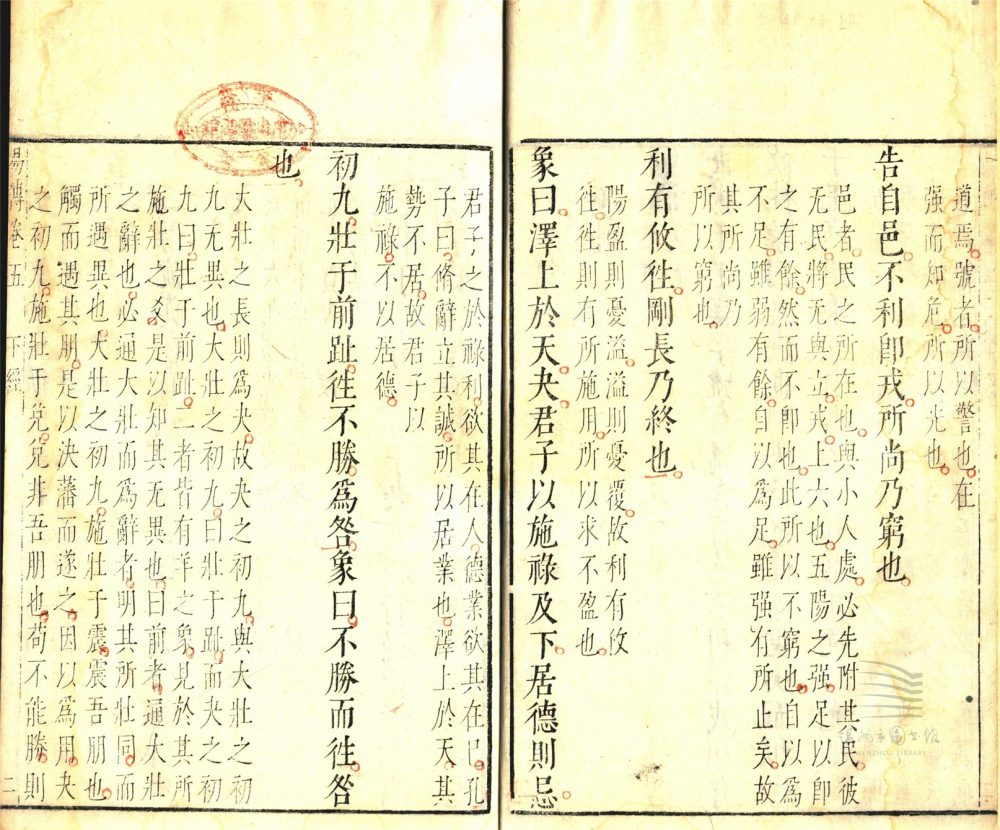 道焉號者所以警也在
强而知危所以光也
告自邑不利卽戎所尚乃窮也
邑者民之所在也與小人處必先附其民彼
无民將无與立戎上六也五陽之强足以卽
之有餘然而不卽也此所以不窮也自以爲
不足雖弱有餘自以爲足雖强有所止矣故
其所尚乃
所以窮也
利有攸徃剛長乃終也
陽盈則憂溢溢則憂覆故利有攸
徃徃則有所施用所以求不盈也
象曰澤上於天夬君子以施祿及下居德則忌
君子之於祿利欲其在人德業欲其在巳孔
子曰脩辭立其誠所以居業也澤上於天其
勢不居故君子以
施祿不以居德
初九壯于前趾徃不勝爲咎象曰不勝而徃咎
也
大壯之長則爲夬故夬之初九與大壯之初
九无異也大壯之初九曰壯于趾而夬之初
九曰壯于前趾二者皆有羊之象見於其所
施壯之爻是以知其无異也曰前者通大壯
之辭也必通大壯而爲辭者明其所壯同而
所遇異也大壯之初九施壯于震震吾朋也
觸而遇其朋是以決藩而遂之因以爲用夬
之初九施壯于兌兌非吾朋也苟不能勝則
易傳卷五 下經 二
WENZHOU LIBRARY